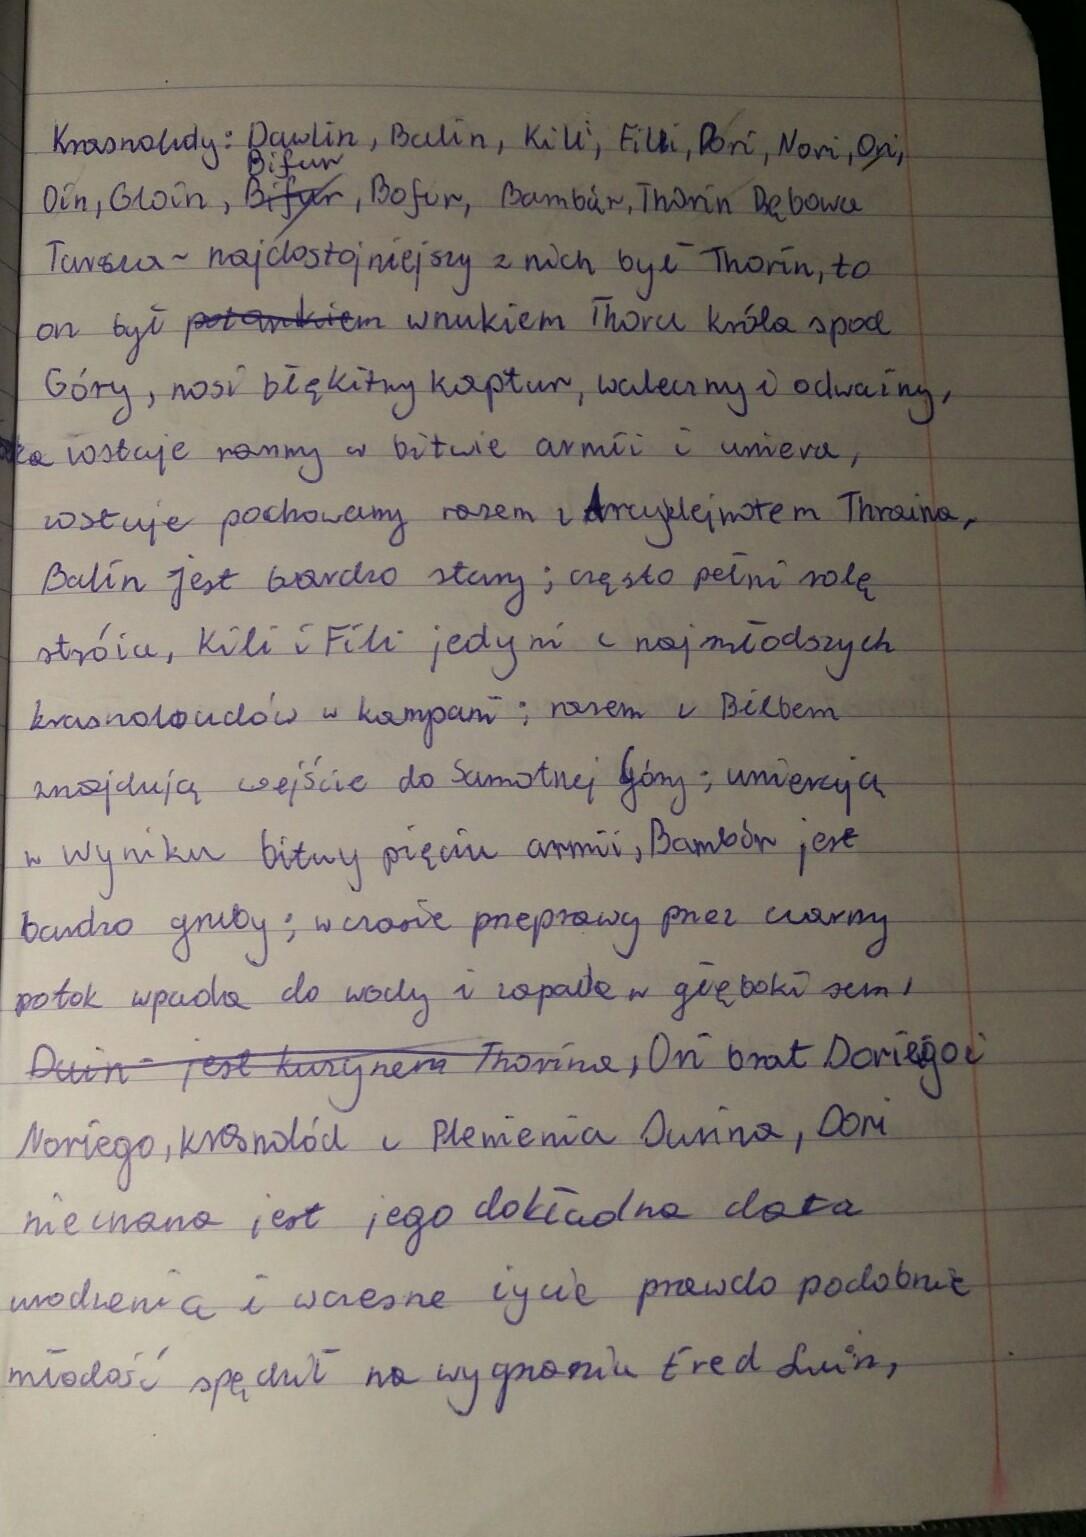 Krasnoludy: Dawlin, Balin, Kili, Filli, Dori, Nori, Ori,
Bifur
Oin, Gloin, Bifur, Bofur, Bambur, Thorin Dębowa
Tarsza - najdostojniejszy z nich był Thorin, to
on był potomkiem wnukiem Thora króla spod
Góry, nosi błękitny kaptur, waleczny i odważny,
zostaje ranny w bitwie armii i umiera,
zostaje pochowany razem z Arcyklejnotem Thraina,
Balin jest bardzo stary; często pełni rolę
stróża, Kili i Fili jedyni z najmłodszych
krasnoloudów w kampani; razem z Bilbem
znajdują wejście do Samotnej Góry; umierają
w wyniku bitwy pięciu armii, Bambur jest
bardzo gruby; w czasie przeprawy przez czarny
potok wpada do wody i zapada w głęboki sen,
Duin - jest kuzynem Thorina, Ori brat Doriego i
Noriego, krasnolód z Plemienia Durina, Dori
nieznana jest jego dokładna data
urodzenia i wczesne życie prawdo podobnie
młodość spędził na wygnaniu Ered Luin,